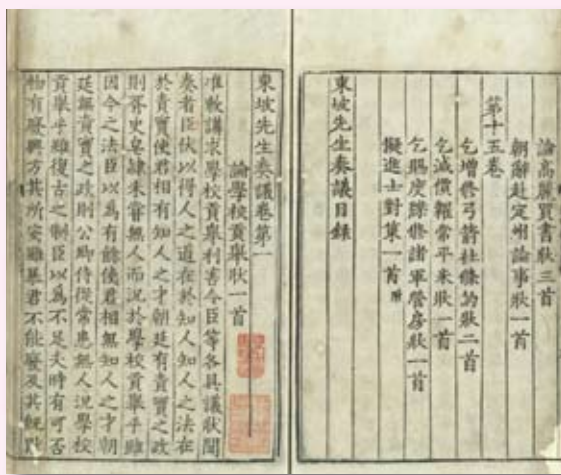 論高麗買書狀三首
朝辭赴定州論事狀一首
第十五卷
乞增修弓箭社條約狀二首
乞減價糶常平米狀一首
乞賜度牒修諸軍營房狀一首
擬進士對策一首附
東坡先生奏議目錄
東坡先生奏議卷第一
論學校貢舉狀一首
准敕講求學校貢舉利害令臣等各具議狀聞
奏者臣伏以得人之道在於知人知人之法在
於責實使君相有知人之才朝廷有責實之政
則胥史皂隸未嘗無人而況於學校貢舉乎雖
因今之法臣以為有餘使君相無知人之才朝
廷無責實之政則公卿侍從常患無人況學校
貢舉乎雖復古之制臣以為不足夫時有可否
物有廢興方其所安雖暴君不能廢及其既厭